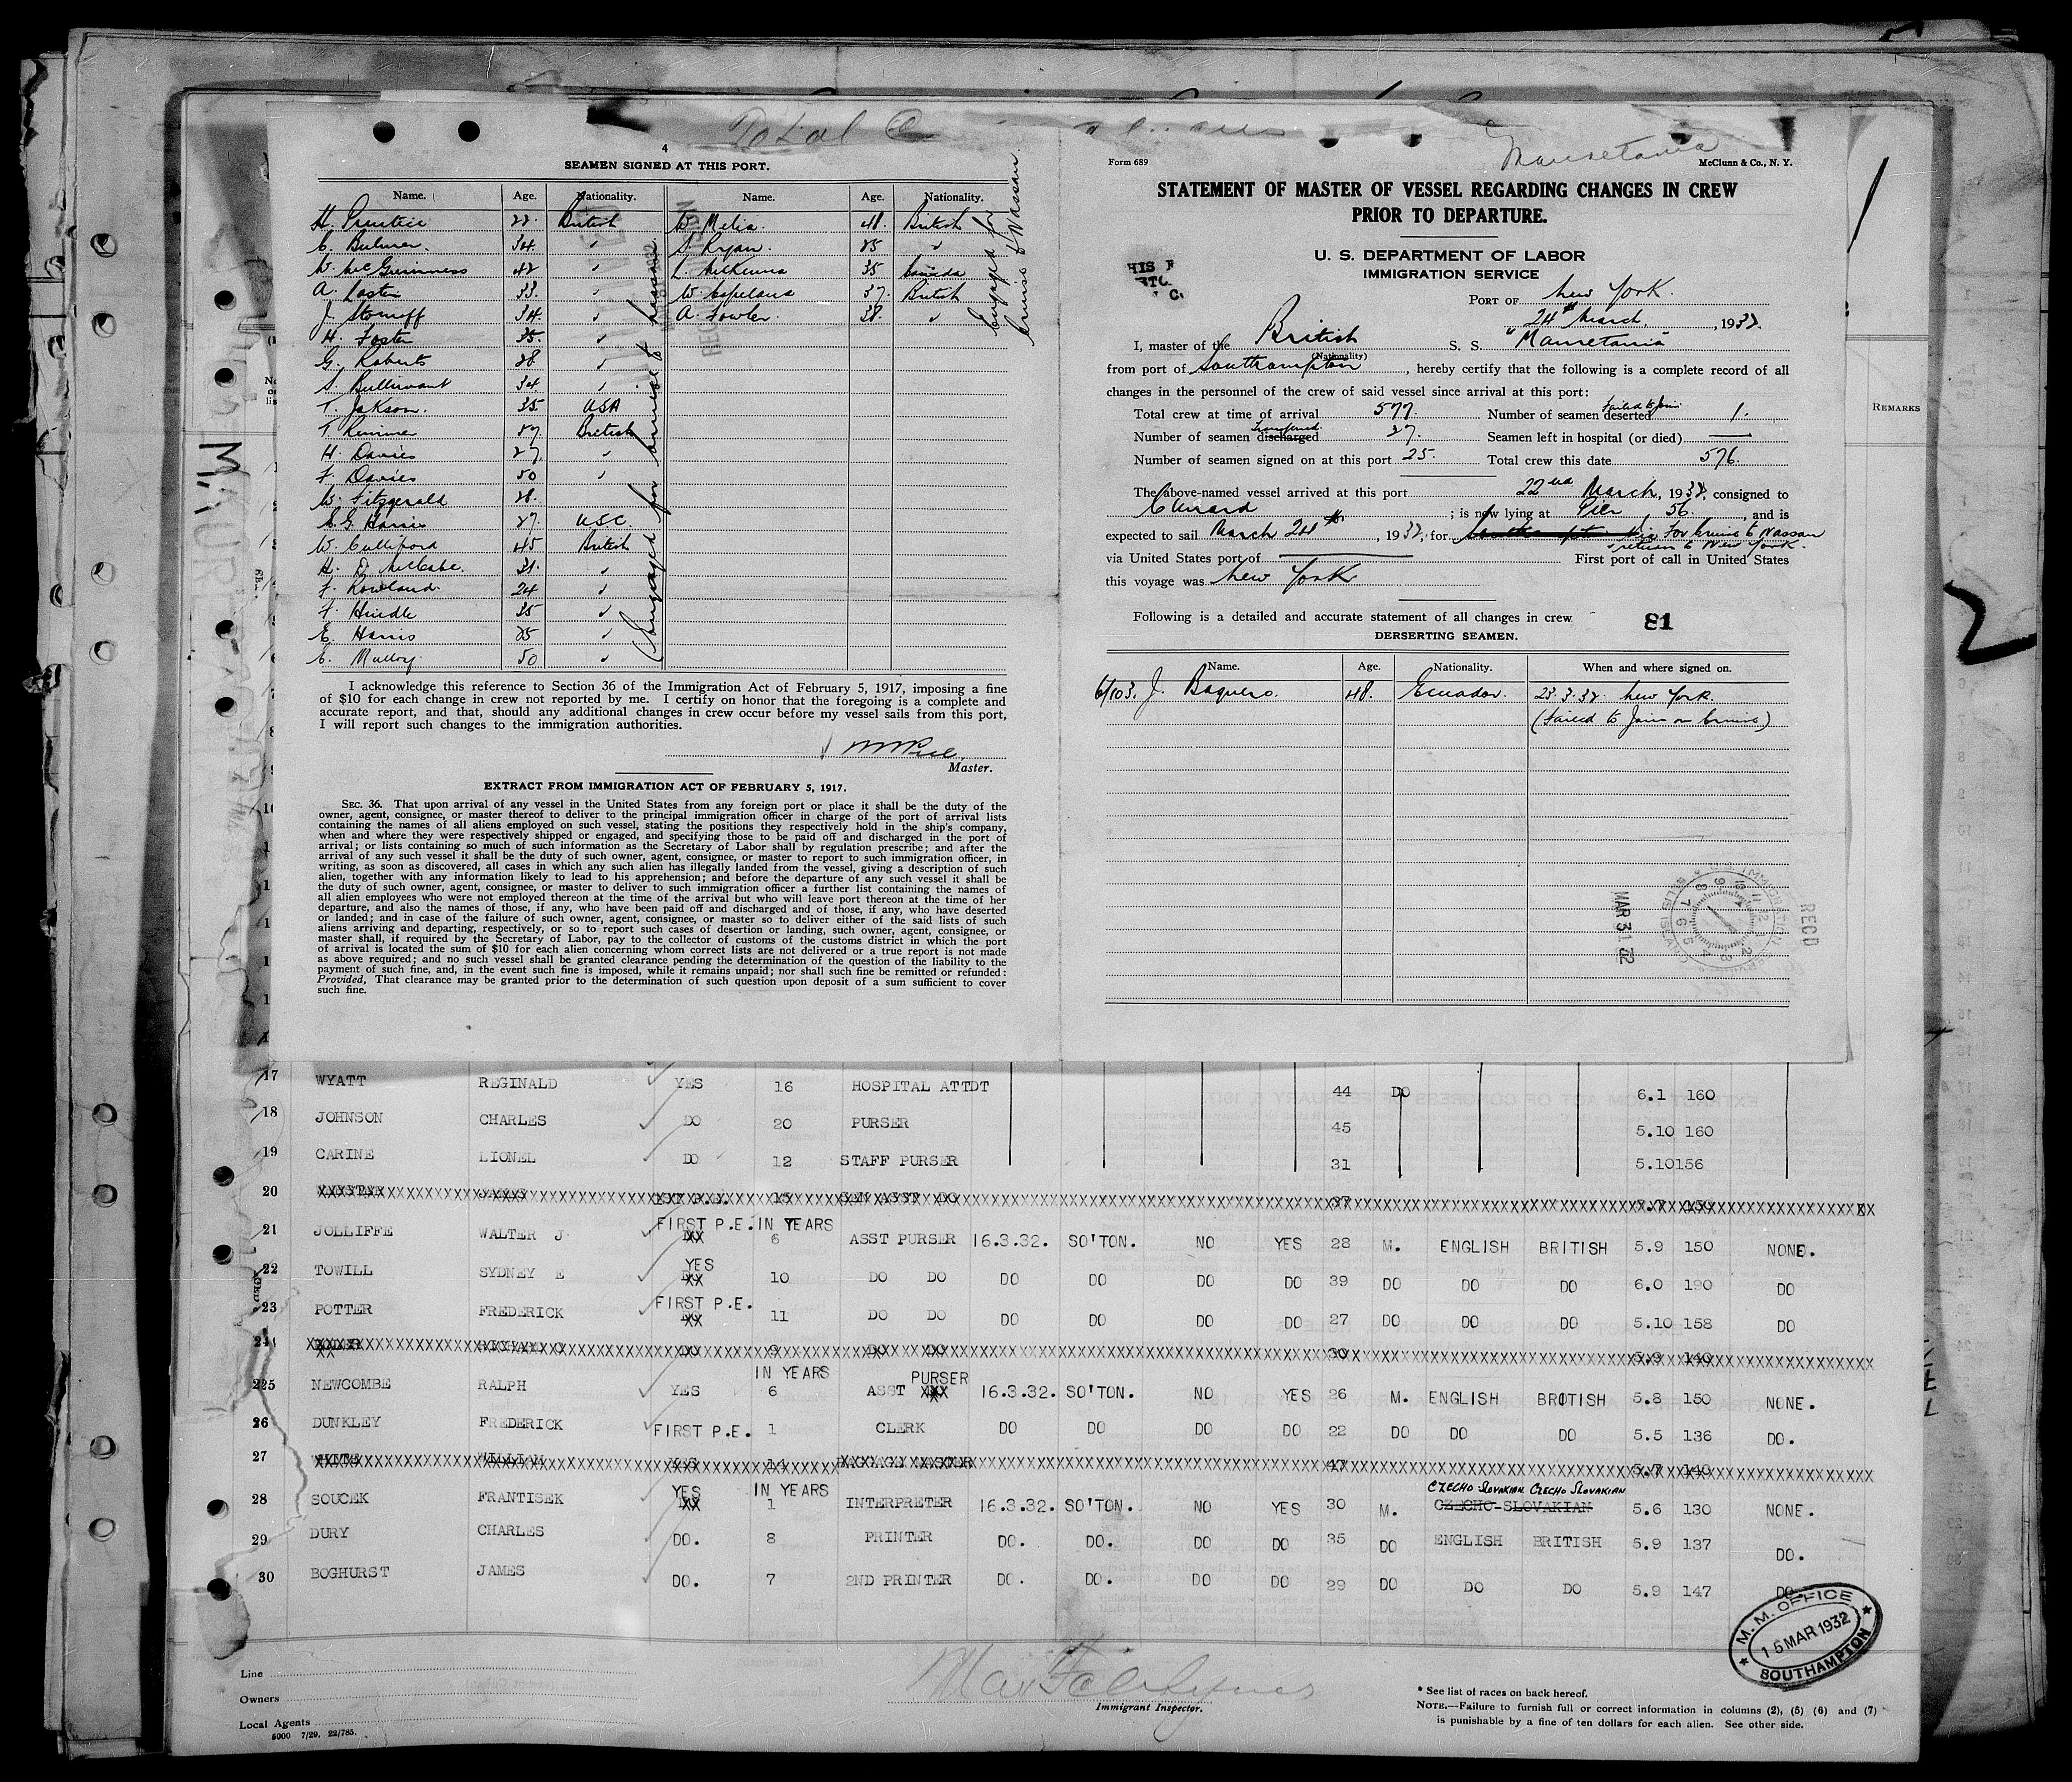 4
SEAMEN SIGNED AT THIS PORT.
Name. Age. Nationality. Name. Age. Nationality.
H. Prentice 22. British W. Melia. 48. British
C. Bulmer. 34. " S. Ryan. 25 "
W. McGuinness 42 " L. McKenna 35 Canada
A. 33. " W. Copeland 37. British
J. 34. " A. Fowler. 38. "
H. Foster 35. "
G. Roberts 28 "
S. Bullivant 34 "
T. Jakson. 35. USA
T. Rimmer 57 British
H. Davies 27 "
F. Davies 50 "
W. Fitzgerald 28.
E.G. Harris 27. USC.
W. Culliford 45 British
H. D. McCabe. 31. "
F. Rowland. 24 "
F. Hindle 35 "
E. Harris 25 "
E. Mulloy. 50 "
(Engaged for cruise to Nassau.
Engaged for
Cruise to Nassau.
I acknowledge this reference to Section 36 of the Immigration Act of February 5, 1917, imposing a fine
of $10 for each change in crew not reported by me. I certify on honor that the foregoing is a complete and
accurate report, and that, should any additional changes in crew occur before my vessel sails from this port,
I will report such changes to the immigration authorities.
Master.
EXTRACT FROM IMMIGRATION ACT OF FEBRUARY 5, 1917.
SEC. 36. That upon arrival of any vessel in the United States from any foreign port or place it shall be the duty of the
owner, agent, consignee, or master thereof to deliver to the principal immigration officer in charge of the port of arrival lists
containing the names of all aliens employed on such vessel, stating the positions they respectively hold in the ship's company,
when and where they were respectively shipped or engaged, and specifying those to be paid off and discharged in the port of
arrival; or lists containing so much of such information as the Secretary of Labor shall by regulation prescribe; and after the
arrival of any such vessel it shall be the duty of such owner, agent, consignee, or master to report to such immigration officer, in
writing, as soon as discovered, all cases in which any such alien has illegally landed from the vessel, giving a description of such
alien, together with any information likely to lead to his apprehension; and before the departure of any such vessel it shall be
the duty of such owner, agent, consignee, or master to deliver to such immigration officer a further list containing the names of
all alien employees who were not employed thereon at the time of the arrival but who will leave port thereon at the time of her
departure, and also the names of those, if any, who have been paid off and discharged and of those, if any, who have deserted
or landed; and in case of the failure of such owner, agent, consignee, or master so to deliver either of the said lists of such
aliens arriving and departing, respectively, or so to report such cases of desertion or landing, such owner, agent, consignee, or
master shall, if required by the Secretary of Labor, pay to the collector of customs of the customs district in which the port
of arrival is located the sum of $10 for each alien concerning whom correct lists are not delivered or a true report is not made
as above required; and no such vessel shall be granted clearance pending the determination of the question of the liability to the
payment of such fine, and, in the event such fine is imposed, while it remains unpaid; nor shall such fine be remitted or refunded:
Provided, That clearance may be granted prior to the determination of such question upon deposit of a sum sufficient to cover
such fine.
Mauretania
Form 689 McClunn & Co., N. Y.
STATEMENT OF MASTER OF VESSEL REGARDING CHANGES IN CREW
PRIOR TO DEPARTURE.
U. S. DEPARTMENT OF LABOR
IMMIGRATION SERVICE
PORT OF New York.
24th March, 1932.
I, master of the British S. S. "Mauretania"
(Nationality)
from port of Southampton, hereby certify that the following is a complete record of all
changes in the personnel of the crew of said vessel since arrival at this port:
Total crew at time of arrival 577. Number of seamen deserted failed to join 1.
Number of seamen discharged transferred 27. Seamen left in hospital (or died)
Number of seamen signed on at this port 25. Total crew this date 576.
The above-named vessel arrived at this port 22nd March, 1932, consigned to
Cunard ; is now lying at Pier 56, and is
expected to sail March 24th, 1932, for For Cruise to Nassau
return to New York.
via United States port of First port of call in United States
this voyage was New York
Following is a detailed and accurate statement of all changes in crew
81
DERSERTING SEAMEN.
Name. Age. Nationality. When and where signed on.
6/103. J. Baquero. 48. Ecuador. 23.3.32. New York.
(Failed to Join on Cruise)
REC'D
MAR 31
REMARKS
2
17 WYATT REGINALD YES 16 HOSPITAL ATTDT 44 DO 6.1 160
18 JOHNSON CHARLES DO 20 PURSER 45 5.10 160
19 CARINE LIONEL DO 12 STAFF PURSER 31 5.10 156
20
21 JOLLIFFE WALTER J FIRST P.E. IN YEARS 6 ASST PURSER 16.3.32. SO'TON. NO YES 28 M. ENGLISH BRITISH 5.9 150 NONE.
22 TOWILL SYDNEY E YES 10 DO DO DO DO DO DO 39 DO DO DO 6.0 190 DO
23 POTTER FREDERICK FIRST P.E. 11 DO DO DO DO DO DO 27 DO DO DO 5.10 158 DO
24
25 NEWCOMBE RALPH YES IN YEARS 6 ASST PURSER 16.3.32. SO'TON. NO YES 26 M. ENGLISH BRITISH 5.8 150 NONE.
26 DUNKLEY FREDERICK FIRST P.E. 1 CLERK DO DO DO DO 22 DO DO DO 5.5 136 DO.
27
28 SOUCEK FRANTISEK YES IN YEARS 1 INTERPRETER 16.3.32. SO'TON. NO YES 30 M. CZECHO SLOVAKIAN CZECHO SLOVAKIAN CZECHO-SLOVAKIAN 5.6 130 NONE.
29 DURY CHARLES DO. 8 PRINTER DO. DO. DO DO 35 DO ENGLISH BRITISH 5.9 137 DO.
30 BOGHURST JAMES DO. 7 2ND PRINTER DO. DO. DO DO 29 DO DO DO 5.9 147 DO
M. M. OFFICE
15 MAR 1932
SOUTHAMPTON
Line
Owners
Local Agents
5000 7/29. 22/785.
Immigrant Inspector.
* See list of races on back hereof.
NOTE.—Failure to furnish full or correct information in columns (2), (5) (6) and (7)
is punishable by a fine of ten dollars for each alien. See other side.